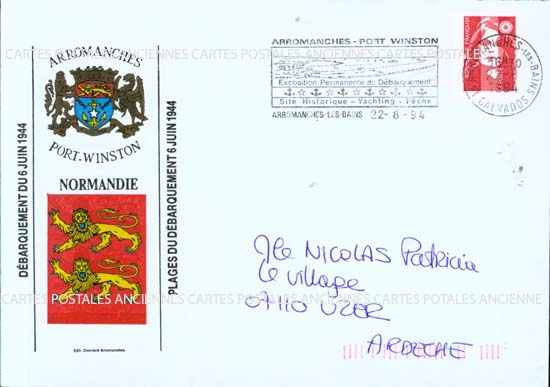 DÉBARQUEMENT DU 6 JUIN 1944
ARROMANCHES
PORT-WINSTON
NORMANDIE
PLAGES DU DÉBARQUEMENT 6 JUIN 1944
Edit. Diorland Arromanches
ARROMANCHES - PORT WINSTON
Exposition Permanente du Débarquement
Site Historique - Yachting - Pêche
ARROMANCHES-LES-BAINS 22-8-94
ARROMANCHES-LES-BAINS
CALVADOS
CARTES POSTALES ANCIENNES CARTES POSTALES ANCIENNES CARTES POSTALES ANCIENNE
Mlle NICOLAS Patricia
Le village
07110 UZER
ARDECHE
CARTES POSTALES ANCIENNES CARTES POSTALES ANCIENNES CARTES POSTALES ANCIENNE